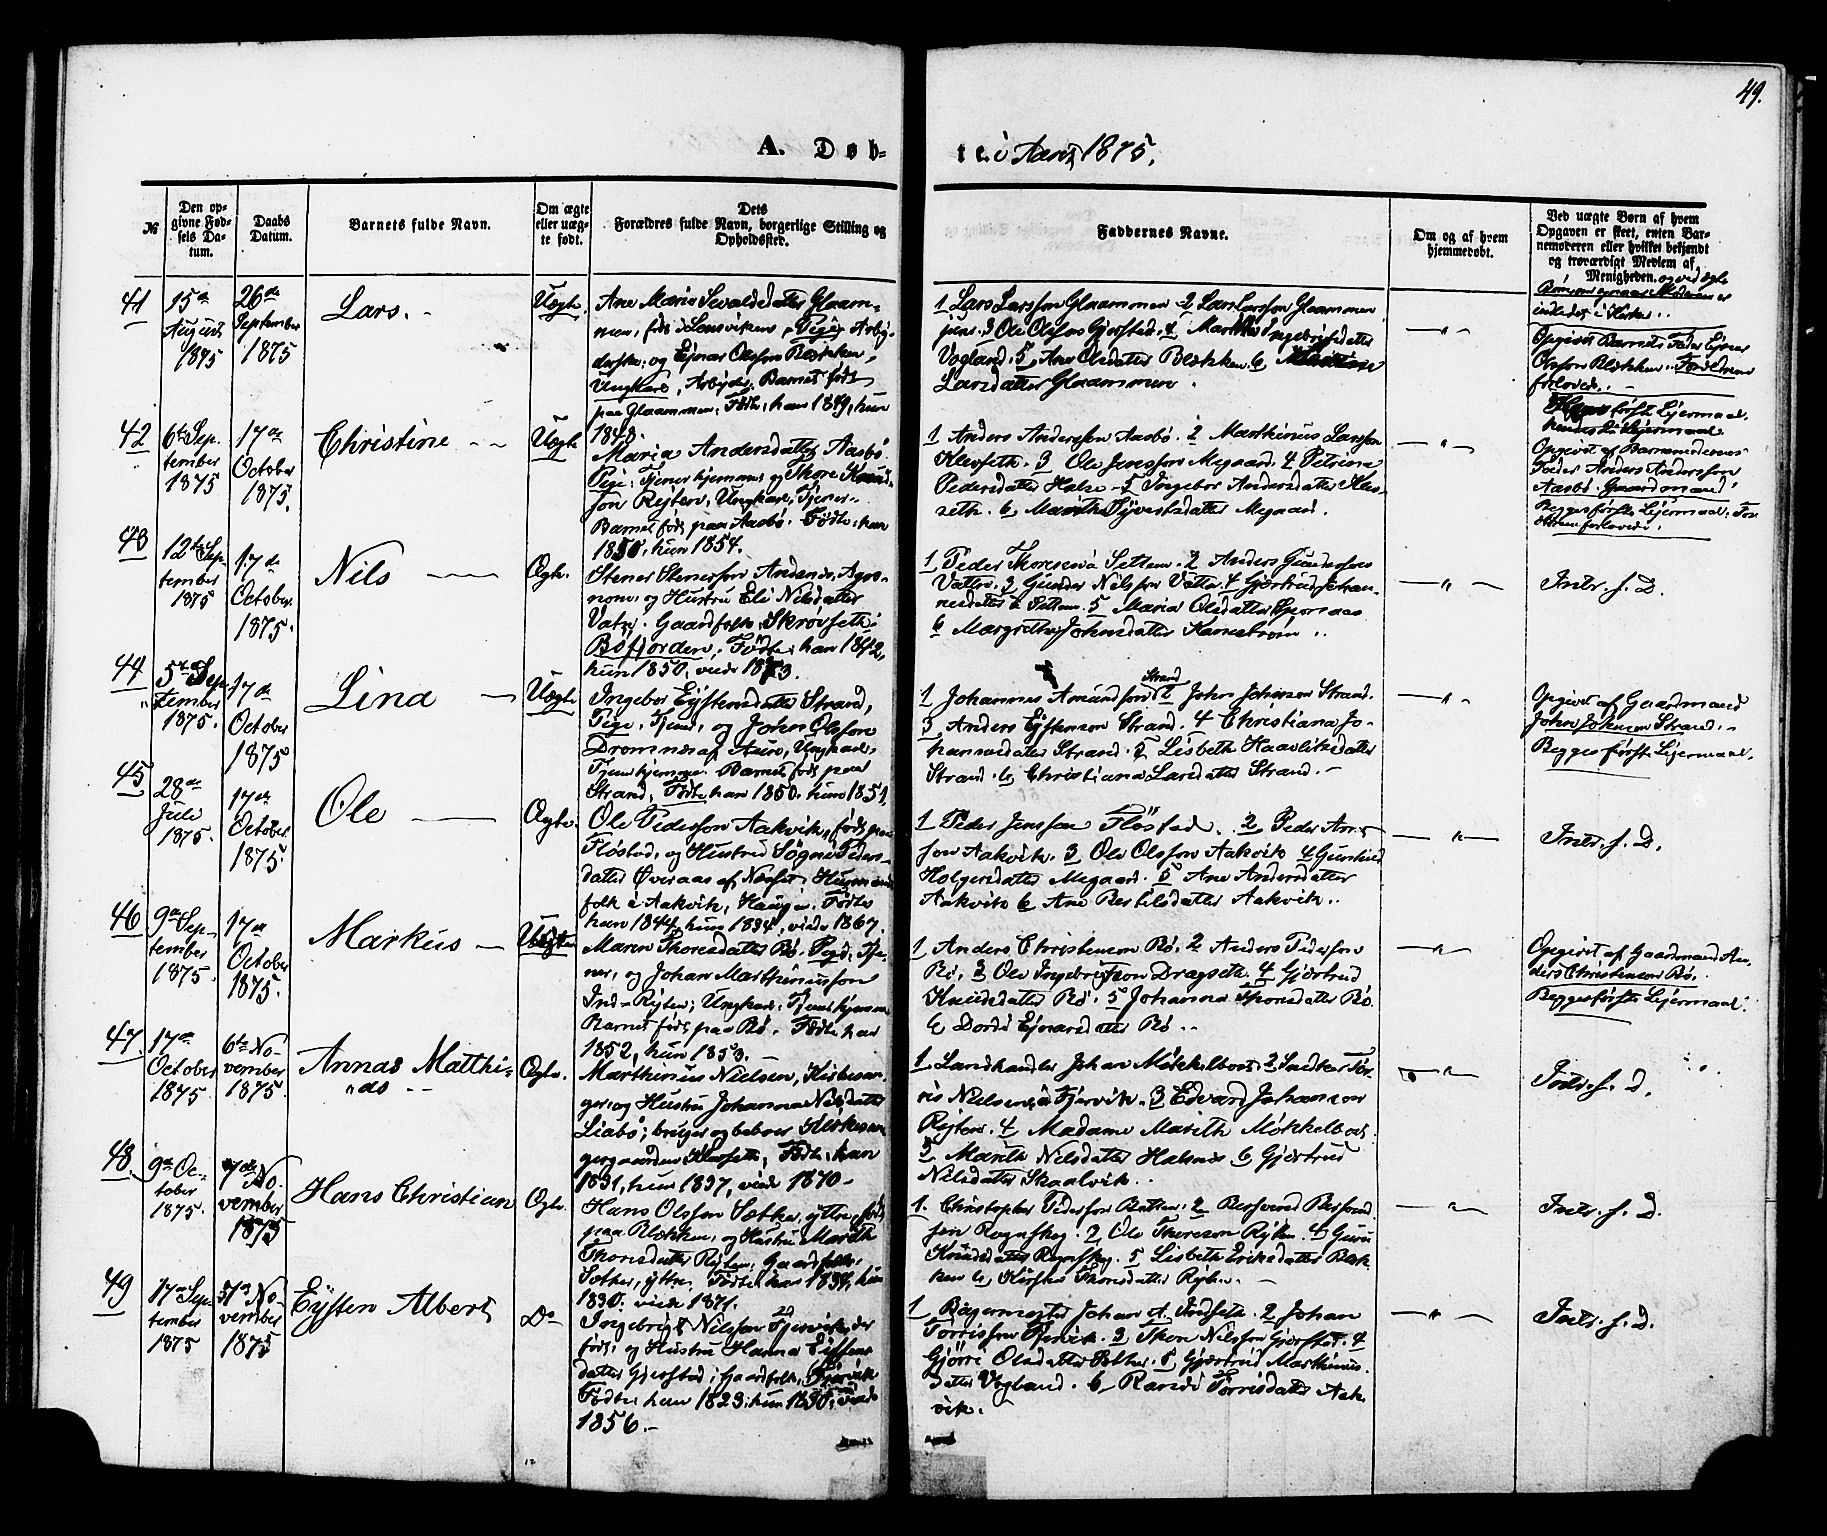 49.
A. Døb-
te. i Aaret 1875.
№
Den op-
givne Fød-
sels Da-
tum.
Daabs
Datum.
Barnets fulde Navn.
Om ægte
eller uæg-
te født.
Dets
Forældres fulde Navn, borgerlige Stilling og
Opholdssted.
Faddernes Navne.
Om og af hvem
hjemmedøbt.
Ved uægte Børn af hvem
Opgaven er skeet, enten Bar-
nemoderen eller hvilket bekjendt
og troværdigt Medlem af
Menigheden.
41
15de
August
1875
26de
September
1875
Lars.
Uægte.
Ane Maria Sevaldsdatter Glaam-
men, født i Lensviken, Pige, Arbej-
derske, og Ejnar Olsson Blekken,
Ungkarl, Arbejder. Barnet født
paa Glaammen. Fødte: han 1849, hun
1848.
1 Lars Larsson Glaammen 2 Lars Larsson Glaammen
3 Ole Olsson Gjerstad. 4 Marith Ingebrigtsdatter
Vogland. 5 Ane Olsdatter Blekken. 6
Larsdatter Glaammen.
Opgivet Barnets Fader Ejner
Olsson Blekken.
forlovede.
42
6te Sep-
tember
1875
17de
October
1875.
Christine
Uægte
Maria Andersdatter Aasbø.
Pige, Tjener hjemme, og Thore Knud-
son Rejten, Ungkarl, Tjener.
Barnet født paa Aasbø. Fødte: han
1850, hun 1854.
1 Anders Andersson Aasbø. 2 Marthinus Larsson
Klevseth. 3 Ole Jensson Megaard. 4 Petrine
Pedersdatter Halse. 5 Ingebor Andersdatter
6 Marith Sjverstsdatter Megaard.
første Lejermaal.
Opgivet af Barnemoderens
Fader Anders Andersson
Aasbø. Gaardmand.
Begges første Lejermaal.
43
12te Sep-
tember
1875
17de
October
1875.
Nils
Ægte.
Stener Stenersson Andenes, Agro-
nom, og Hustru Eli Nilsdatter
Vatn. Gaardfolk, Skrøvseth i
Bøfjorden. Fødte: han 1842,
hun 1850, viede 1873.
1 Peder Thoreson Settem. 2 Anders Gunderson
Vatten. 3 Gunder Nilsson Vatten. 4 Gjertrud Johan-
nesdatter Settem. 5 Maria Olsdatter
6 Margrethe Johnsdatter Kanestrøm.
Intr. f. D.
44
5te Sep-
tember
1875.
17de
October
1875
Lina
Uægte
Ingebor Eystensdatter Strand,
Pige, Tjener, og John Olsson
Dromnes af Aure, Ungkarl,
Tjener hjemme. Barnet født paa
Strand. Fødte han 1850. hun 1851.
Strand
1 Johannes Amundson 2 John Johnson Strand.
3 Anders Eystenson Strand. 4 Christiana Jo-
hannesdatter Strand. 5 Lisbeth Haaversdatter
Strand. 6 Christiana Larsdatter Strand.
Opgivet af Gaardmand
John Johnson Strand.
Begges første Lejermaal.
45
28de
Juli
1875.
17de
October
1875.
Ole
Ægte.
Ole Pederson Aakvik, født paa
Fløstad, og Hustru Søgni Peders-
datter Øveraas af Nesset. Husmand-
folk i Aakvik, Haugen. Fødte
han 1844, hun 1834, viede 1867.
1 Peder Jensson Fløstad. 2 Peder Arne-
son Aakvik. 3 Ole Olsson Aakvik 4 Gunhild
Holgersdatter Megaard. 5 Ane Andersdatter
Aakvik 6 Ane Bertilsdatter Aakvik.
Intr. f. D.
46
9de Sep-
tember
1875.
17de
October
1875.
Markus
Uægte
Maren Thorsdatter Bø. Pige, Tje-
ner, og Johan Marthinusson
Ind-Rejten; Ungkarl, Tjener hjemme
Barnet født paa Bø. Fødte: han
1852, hun 1853.
1 Anders Christenson Bø. 2 Anders Pederson
Bø. 3 Ole Ingebrigtson Dragseth. 4 Gjertrud
Knudsdatter Bø. 5 Johanna Thorsdatter Bø.
6 Dordi Ejnarsdatter Bø.
Opgivet af Gaardmand An-
ders Christenson Bø.
Begges første Lejermaal.
47
17de
October
1875
6te No-
vember
1875.
Annas Matthi-
"de
Ægte.
Marthinus Nielsen, Kirkesan-
ger, og Hustru Johanna Nilsdatter
Liabø; bruger og beboer Kirkesan-
gergaarden Klevseth. Fødte: han
1831, hun 1837, viede 1870.
1. Landhandler Johan Møkkelbost. 2 Snedker Tor-
ris Nielsen, Fjervik. 3 Edvard Johanson
Rejten. 4 Madame Marith Møkkelbost.
5 Marith Nilsdatter Halsnes 6 Gjertrud
Nilsdatter Skaalvik.
Intr. f. D.
48
9de Oc-
tober
1875.
7de No-
vember
1875
Hans Christian
Ægte.
Hans Olsson Sæther, yttre, født
paa Blekken, og Hustru Marith
Thorsdatter Rejten; Gaardfolk,
Sæther, yttre. Fødte: han 1834, hun
1830. viede 1871.
1. Christopher Pederson Botten. 2 Berserud Bersend-
son Rognskog. 3 Ole Thoreson Rejten. 4 Guru
Knudsdatter Rognskog. 5 Lisbeth Eriksdatter Blek-
ken 6 Kirsten Thorsdatter Rejten.
Intr. f. D.
49
17de Sep-
tember
1875
No-
vember
1875
Eysten Albert
Do
Ingebrigt Nilsson Fjervik, der
født, og Hustru Hanna Eistens-
datter Gjerstad; Gaardfolk, Fjærvik
Fødte: han 1823. hun 1830. viede
1856.
1 Bøgermester Johan A. Indseth. 2 Johan
Torrisson Fjervik. 3 Thore Nilsson Gjerstad. 4
Gjørre Olsdatter Sæther. 5 Gjertrud Marthinus-
datter Vogland. 6 Randi Torrisdatter Aak-
vik.
Intr. f. D.